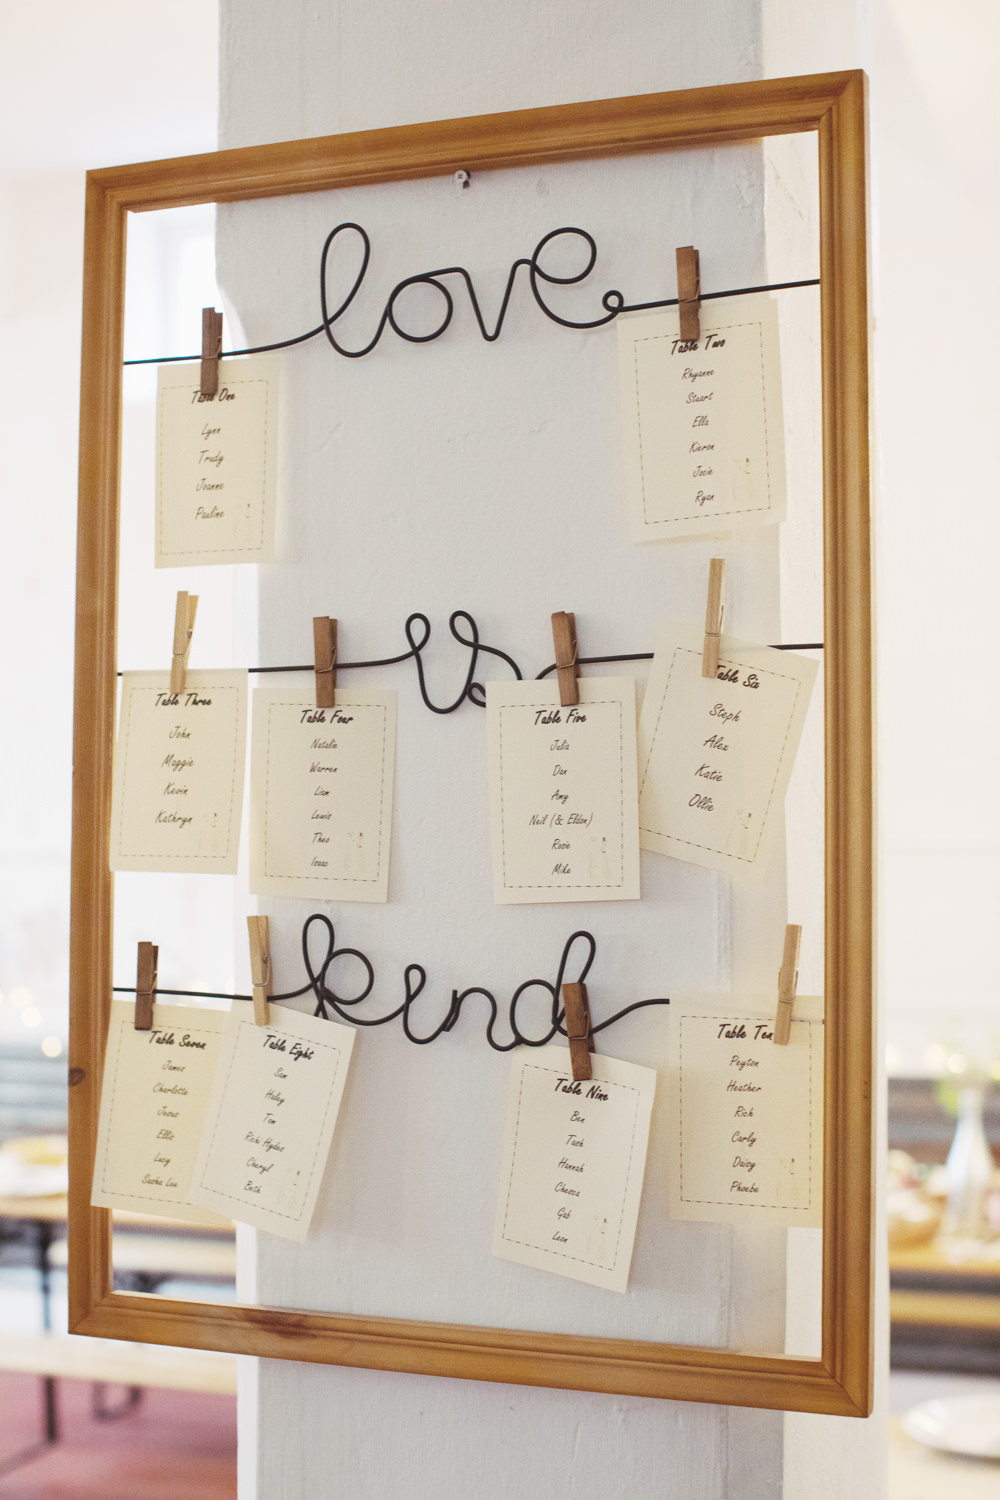 love
Table One
Lynn
Trudy
Joanne
Pauline
Table Two
Rhyanne
Stuart
Ella
Kieron
Josie
Ryan
is
Table Three
John
Maggie
Kevin
Kathryn
Table Four
Natalie
Warren
Liam
Lewis
Theo
Isaac
Table Five
Julia
Dan
Amy
Neil (& Eldon)
Rosie
Mike
Table Six
Steph
Alex
Katie
Ollie
kind
Table Seven
James
Charlotte
Jesus
Ellis
Lucy
Sasha Lee
Table Eight
Sam
Haley
Tom
Richi Hydes
Cheryl
Beth
Table Nine
Ben
Tash
Hannah
Checca
Gab
Leon
Table Ten
Peyton
Heather
Rich
Carly
Daisy
Phoebe